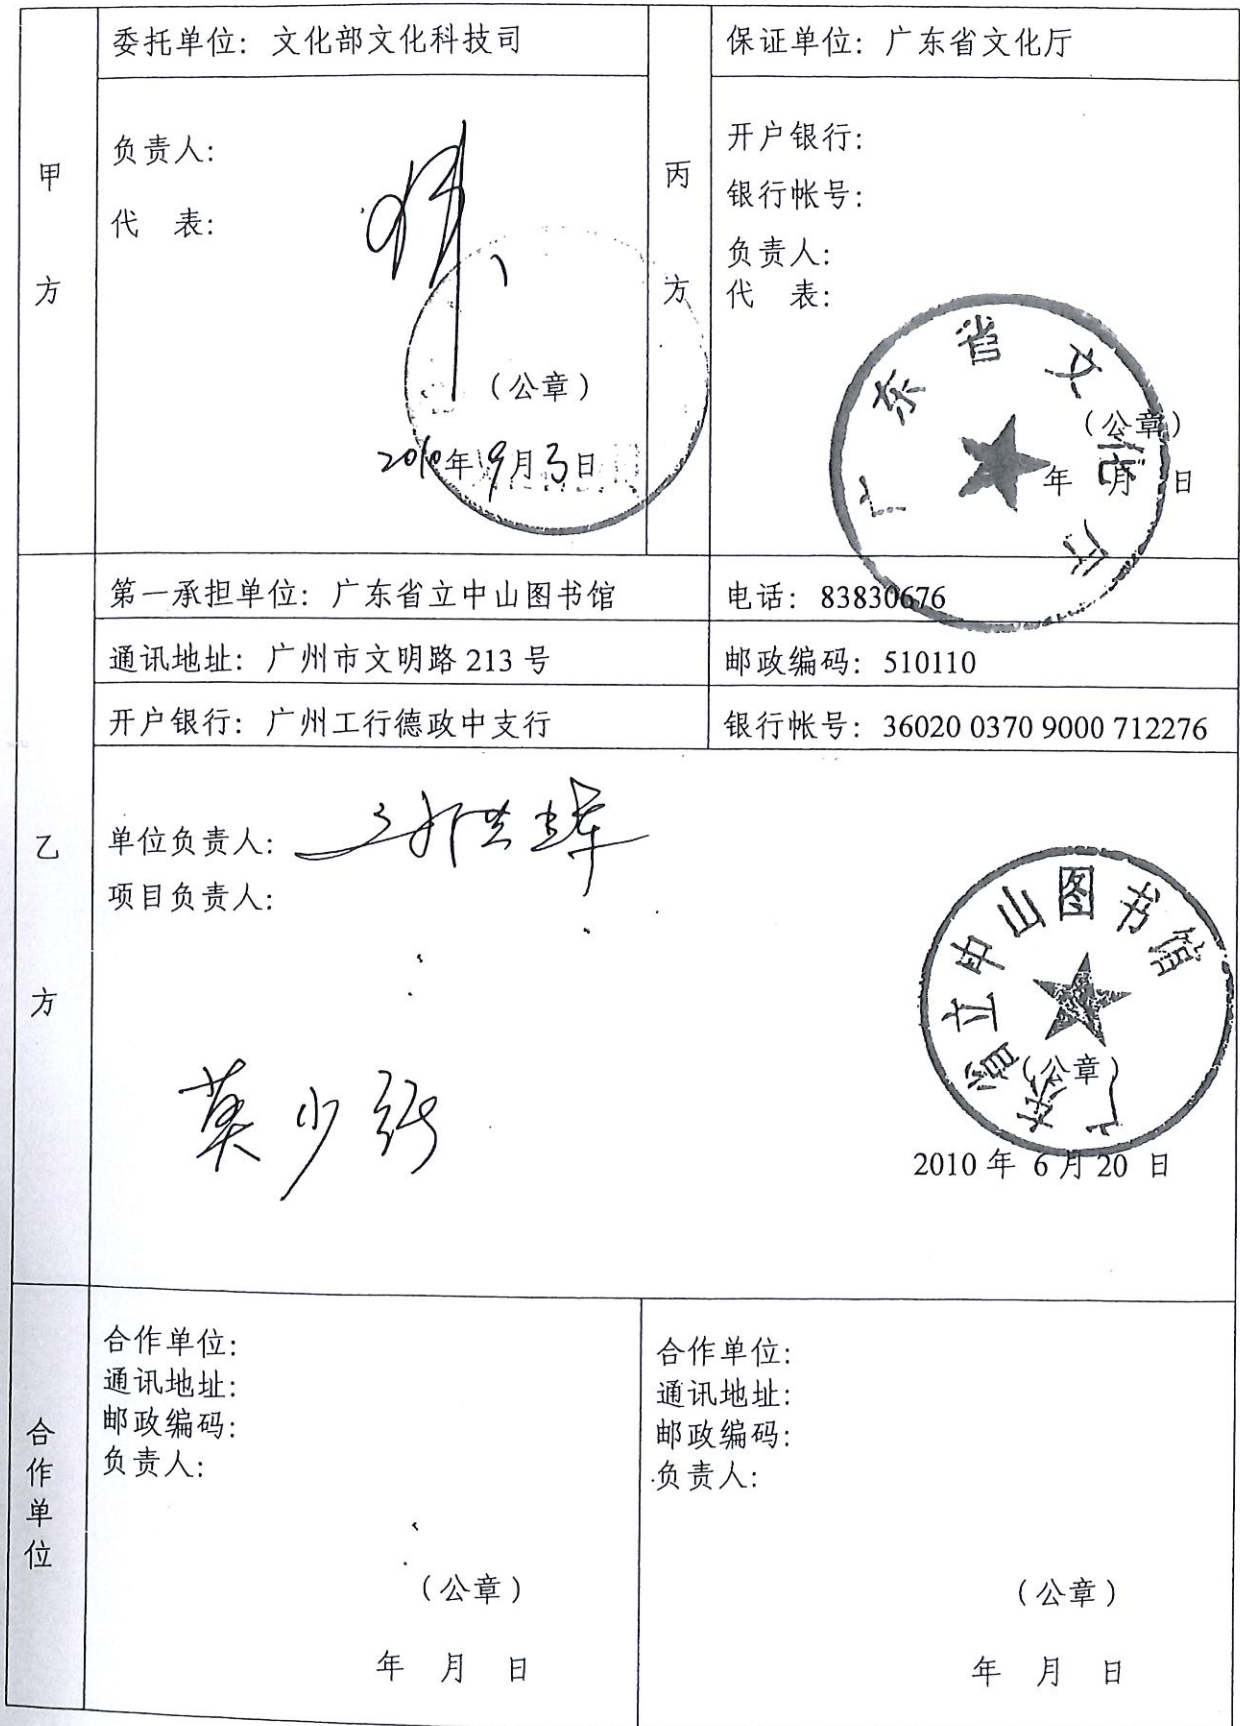 甲方
委托单位：文化部文化科技司
负责人：
代 表：
（公章）
2010年9月3日
丙方
保证单位：广东省文化厅
开户银行：
银行帐号：
负责人：
代 表：
广东省文化厅
（公章）
年 月 日
乙方
第一承担单位：广东省立中山图书馆
电话：83830676
通讯地址：广州市文明路 213 号
邮政编码：510110
开户银行：广州工行德政中支行
银行帐号：36020 0370 9000 712276
单位负责人：
项目负责人：
莫少强
广东省立中山图书馆
（公章）
2010 年 6 月 20 日
合作单位
合作单位：
通讯地址：
邮政编码：
负责人：
（公章）
年 月 日
合作单位：
通讯地址：
邮政编码：
负责人：
（公章）
年 月 日